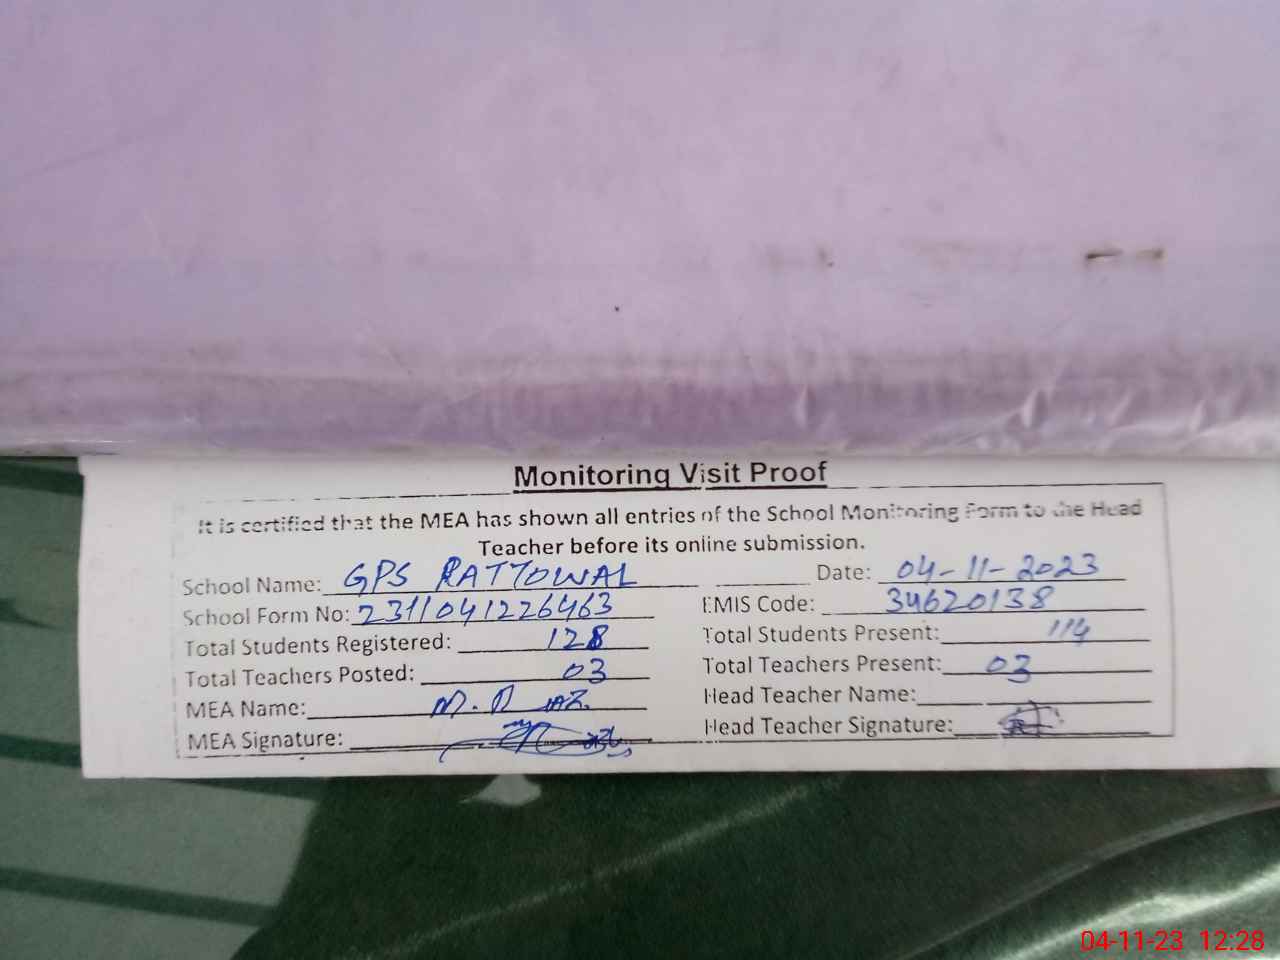 Monitoring Visit Proof
It is certified that the MEA has shown all entries of the School Monitoring Form to the Head
Teacher before its online submission.
School Name: GPS RATTOWAL Date: 04-11-2023
School Form No: 2311041226463 EMIS Code: 34620138
Total Students Registered: 128 Total Students Present: 114
Total Teachers Posted: 03 Total Teachers Present: 03
MEA Name: M. Head Teacher Name:
MEA Signature: Head Teacher Signature:
04-11-23 12:28